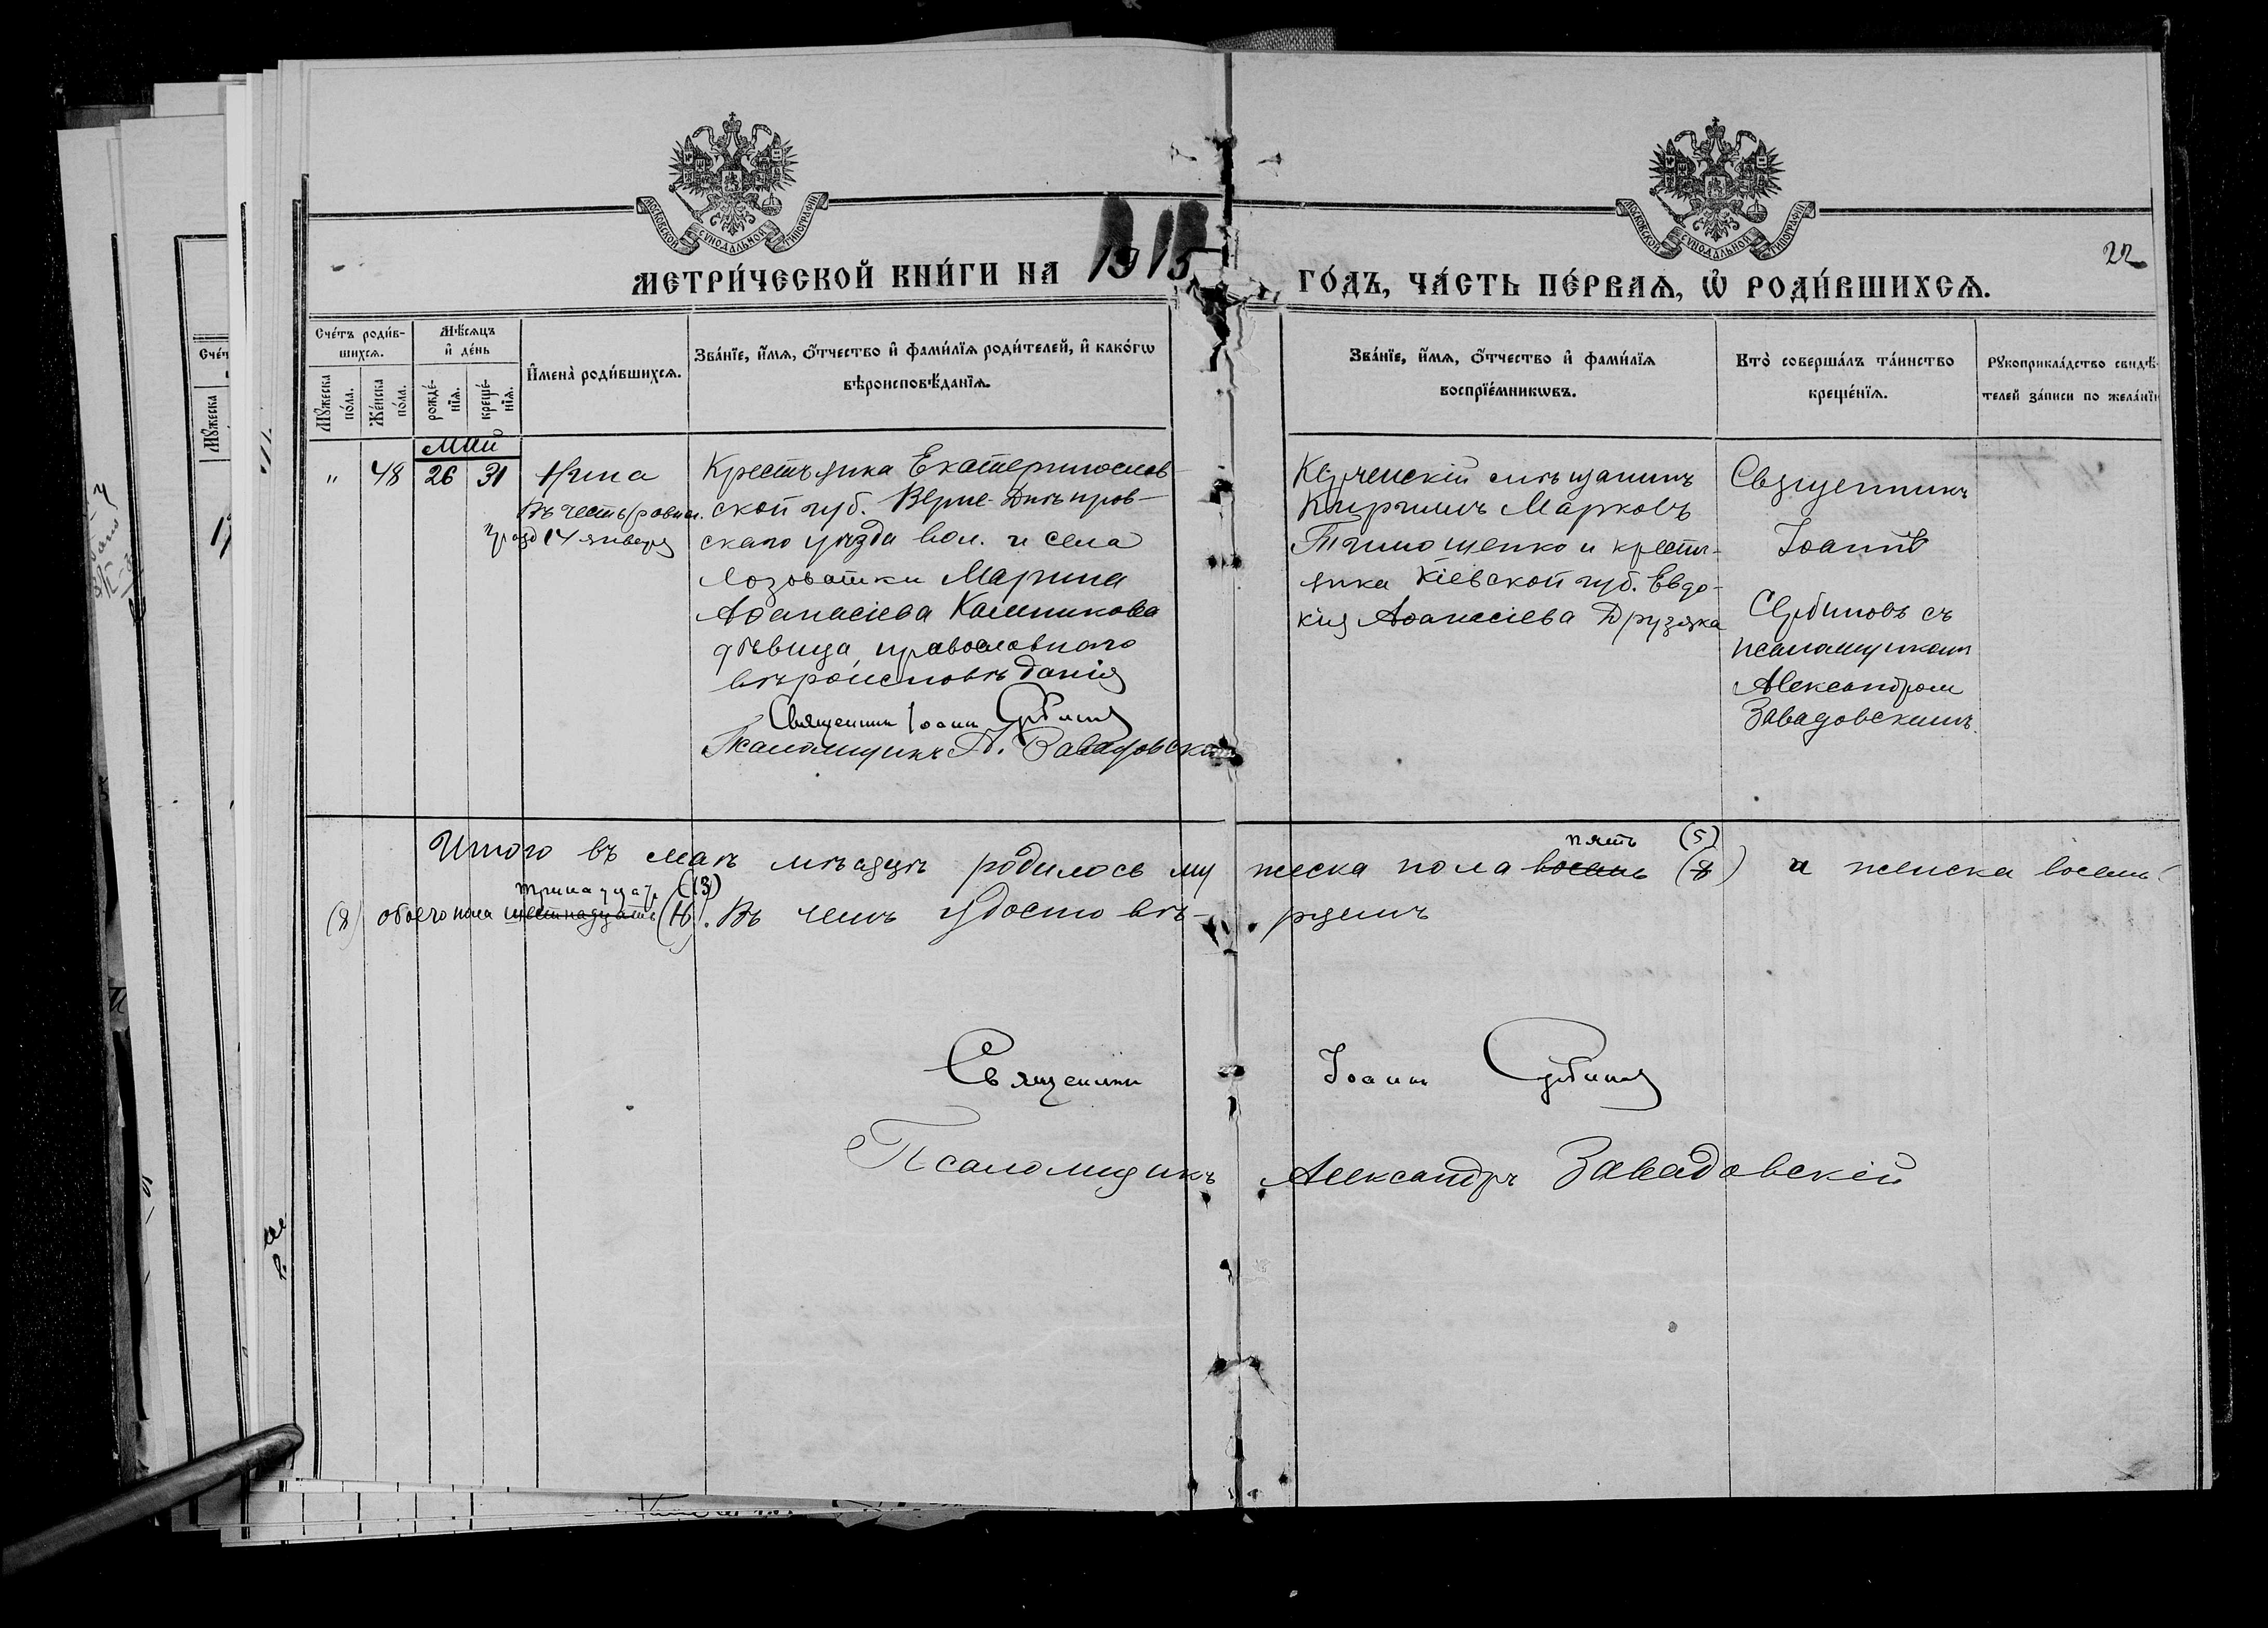 МОСКОВСКОЙ СѴНОДАЛЬНОЙ ТИПОГРАФІИ
МОСКОВСКОЙ СѴНОДАЛЬНОЙ ТИПОГРАФІИ
22
МЕТРИ́ЧЕСКОЙ КНИ́ГИ НА 1915 ГО́ДЪ, ЧА́СТЬ ПЕ́РВАѦ, Ѡ҆ РОДИ́ВШИХСѦ.
Сче́тъ роди́в-
шихсѧ.
Мꙋ́жеска по́ла.
Же́нска по́ла.
Мѣ́сѧцъ
и҆ де́нь
рожде́-нїѧ.
креще́-нїѧ.
И҆мена̀ роди́вшихсѧ.
Зва́нїе, и҆́мѧ, ѻ҆́тчество и҆ фами́лїѧ роди́телей, и҆ како́гѡ
вѣроисповѣ́данїѧ.
Зва́нїе, и҆́мѧ, ѻ҆́тчество и҆ фами́лїѧ
воспрїе́мникѡвъ.
Кто̀ соверша́лъ та́инство
креще́нїѧ.
Рꙋкоприкла́дство свидѣ́-
телей за́писи по жела́нїю
Май
" 48 26 31 Нина
Въ честь равноап.
празд 14 января
Крестьянка Екатеринослав-
ской губ. Верхне-Днѣпров-
скаго уѣзда вол. и села
Лозоватки Марина
Аѳанасіева Калникова
дѣвица, православнаго
вѣроисповѣданія
Священникъ Іоаннъ Сербиновъ
Псаломщикъ А. Завадовскій
Керченскій мѣщанинъ
Кириллъ Марковъ
Тимошенко и кресть-
янка Кіевской губ. Евдо-
кія Аѳанасіева Друзяка
Священникъ
Іоаннъ
Сербиновъ съ
псаломщикомъ
Александромъ
Завадовскимъ.
Итого въ маѣ мѣсяцѣ родилось мужеска пола восемь пять (5) (8) и женска восемь
(8) обоего пола шестнадцать тринадцать (13) (16). Въ чемъ удостовѣ-ряемъ
Священникъ Іоаннъ Сербиновъ
Псаломщикъ Александръ Завадовскій